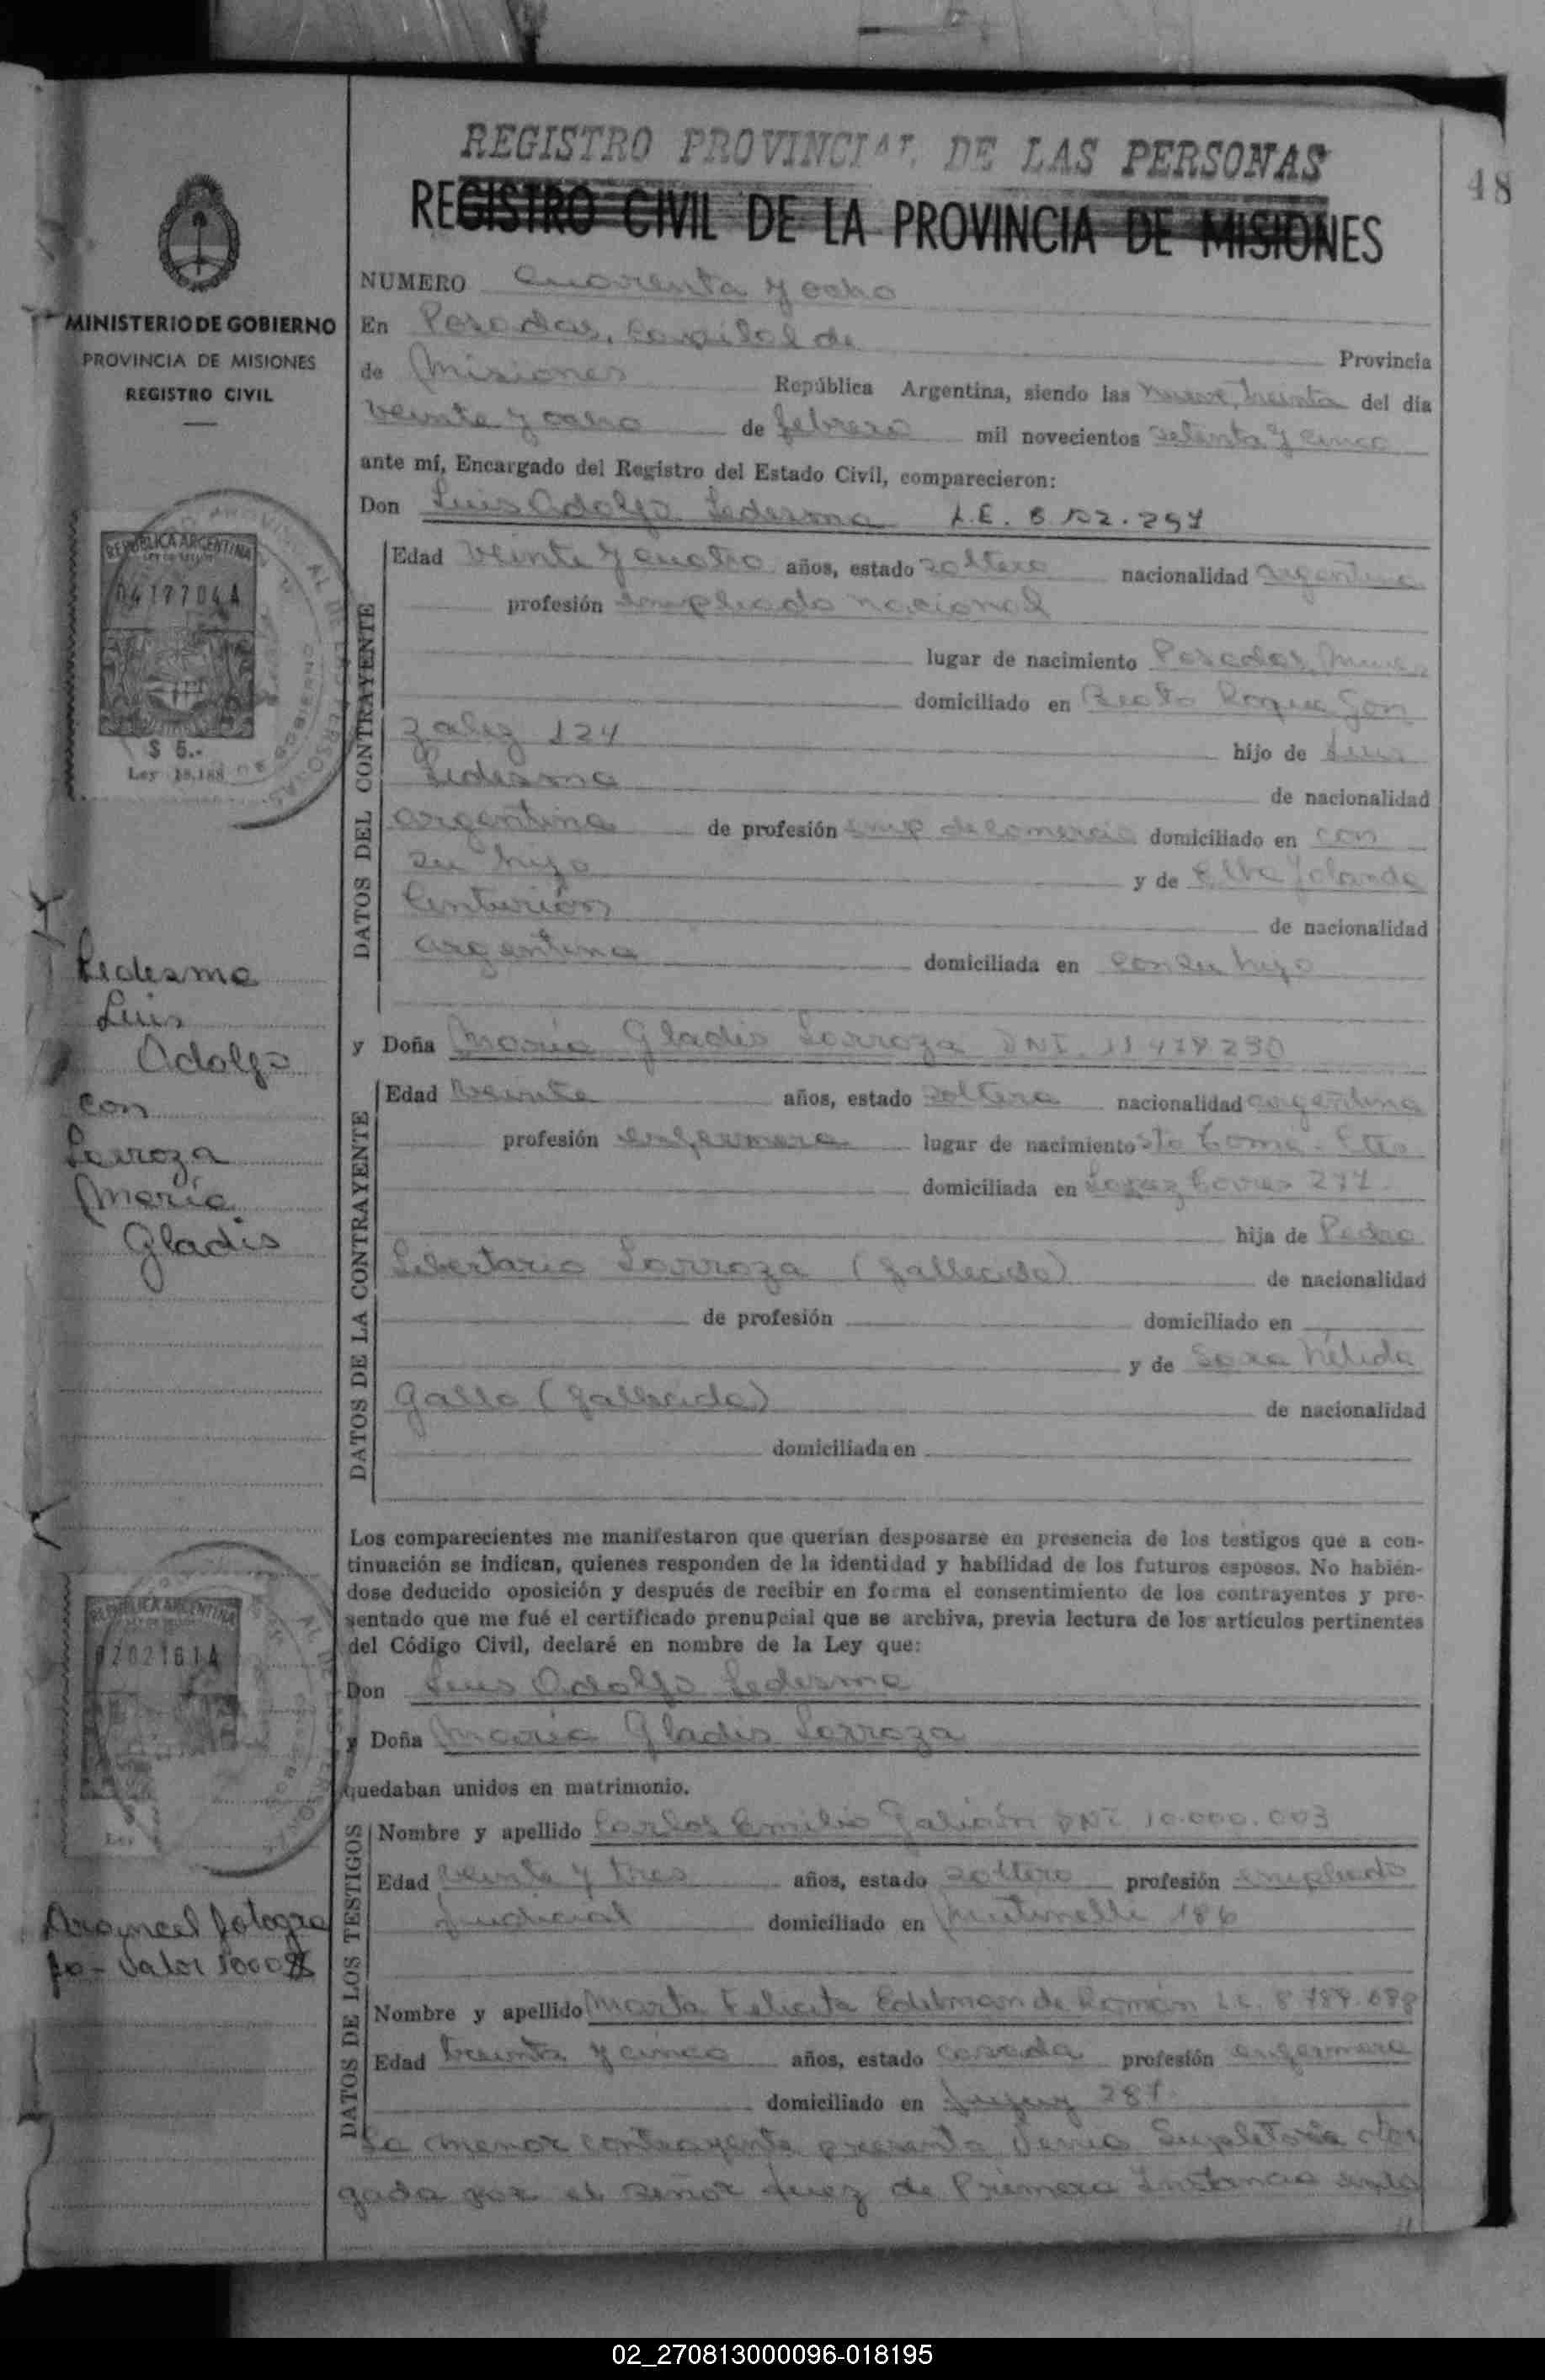 REGISTRO PROVINCIAL DE LAS PERSONAS
48
REGISTRO CIVIL DE LA PROVINCIA DE MISIONES
MINISTERIO DE GOBIERNO
PROVINCIA DE MISIONES
REGISTRO CIVIL
NUMERO Cuarenta y ocho
En Posadas, Capital de Provincia
de Misiones República Argentina, siendo las nueve, treinta del día
veinte y ocho de febrero mil novecientos setenta y cinco
ante mí, Encargado del Registro del Estado Civil, comparecieron:
Don Luis Adolfo Ledesma L.E.
REPUBLICA ARGENTINA
0417704A
$ 5.-
Ley 18.188
DATOS DEL CONTRAYENTE
Edad veinte y cuatro años, estado soltero nacionalidad argentina
profesión empleado nacional
lugar de nacimiento Posadas,
domiciliado en Beato Roque Gon
zalez 124 hijo de Luis
Ledesma de nacionalidad
argentina de profesión emp de comercio domiciliado en con
su hijo y de Elba Yolanda
Centurión de nacionalidad
argentina domiciliada en con su hijo
Ledesma
Luis
Adolfo
con
Lorroza
María
Gladis
y Doña María Gladis Lorroza DNI.
DATOS DE LA CONTRAYENTE
Edad Veinte años, estado soltera nacionalidad argentina
profesión enfermera lugar de nacimiento Sto Tome - Ctes
domiciliada en Lopez Torres 277
hija de Pedro
Libertario Lorroza (fallecido) de nacionalidad
de profesión domiciliado en
y de Sara Nélida
Gallo (fallecida) de nacionalidad
domiciliada en
Los comparecientes me manifestaron que querían desposarse en presencia de los testigos que a con-
tinuación se indican, quienes responden de la identidad y habilidad de los futuros esposos. No habién-
dose deducido oposición y después de recibir en forma el consentimiento de los contrayentes y pre-
sentado que me fué el certificado prenupcial que se archiva, previa lectura de los artículos pertinentes
del Código Civil, declaré en nombre de la Ley que:
Don Luis Adolfo Ledesma
y Doña María Gladis Lorroza
quedaban unidos en matrimonio.
REPUBLICA ARGENTINA
DATOS DE LOS TESTIGOS
Nombre y apellido Carlos Emilio Galián DNI 10.000.003
Edad veinte y tres años, estado soltero profesión empleado
judicial domiciliado en 186
Arancel fotogra
fo - Valor
Nombre y apellido Marta Felicita Edelman de Román L.C.
Edad treinta y cinco años, estado casada profesión enfermera
domiciliado en Jujuy 281
La menor contrayente presenta Venia Supletoria otor
gada por el señor Juez de Primera Instancia
02_270813000096-018195